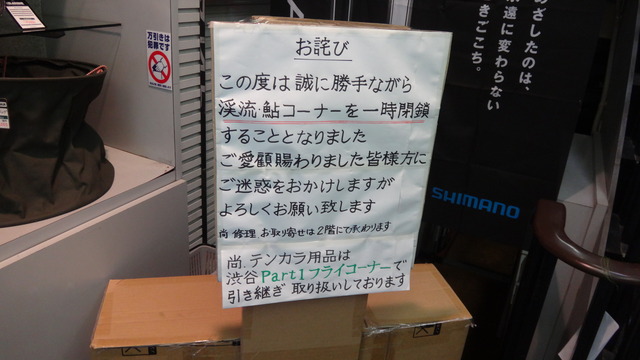 万引きは
犯罪です
お詫び
この度は誠に勝手ながら
渓流・鮎コーナーを一時閉鎖
することとなりました
ご愛顧賜わりました皆様方に
ご迷惑をおかけしますが
よろしくお願い致します
尚、修理、お取り寄せは2階にて承わります
尚、テンカラ用品は
渋谷Part1フライコーナーで
引き継ぎ取り扱いしております
めざしたのは、
永遠に変わらない
きごこち。
SHIMANO